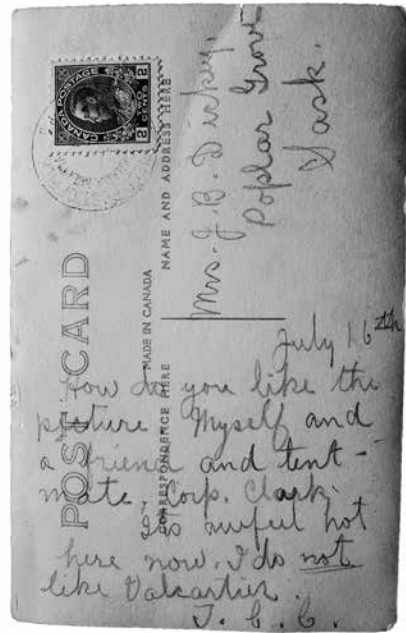 CANADA POSTAGE
2 CENTS 2
POST CARD
MADE IN CANADA
CORRESPONDENCE HERE
NAME AND ADDRESS HERE
Mrs. J. B. Dickey,
Poplar Grove
Sask.
July 16th
How do you like the
picture Myself and
a friend and tent-
mate, Corp. Clark.
Its awful hot
here now. I do not
like Valcartier.
J. C. C.